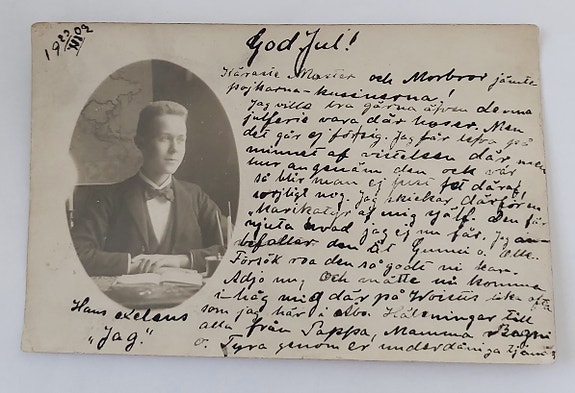 19 23/XII 02
God Jul!
Käraste Moster och Morbror jämte
pojkarna-kusinerna!
Jag ville bra gärna äfven denna
julferie vara där hos er. Men
det går ej för sig. Jag får lefva på
minnet af vistelsen där, men
hur angenäm den ock var
så blir man ej fet däraf,
sorgligt nog. Jag skickar därför en
"karikatyr af mig själf. Den får
njuta hvad jag ej nu får. Jag an-
befaller den åt Gunni o. Olle.
Försök roa den så godt ni kan.
Adjö nu, Och måtte ni komma
i håg mig där på lika ofta
som jag här i Åbo. Hälsningar till
alla från Pappa, Mamma
o. Tyra genom er underdåniga tjänare
Hans
"Jag."